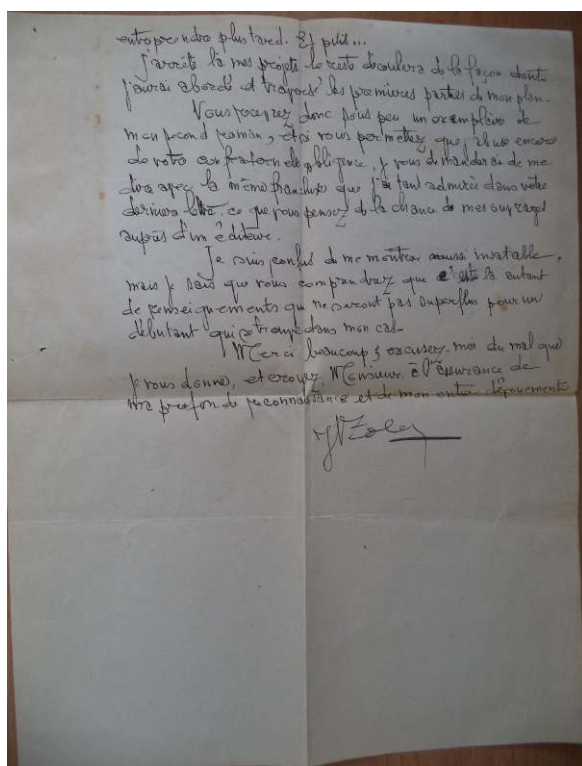 entreprendre plus tard. Et puis...
J'arrête là mes projets le reste découlera de la façon dont
j'aurai abordé et traversé les premières parties de mon plan.
Vous recevrez donc sous peu un exemplaire de
mon second roman, et si vous permettez que j'abuse encore
de votre confraternelle obligeance, je vous demanderai de me
dire avec la même franchise que j'ai tant admirée dans votre
dernière lettre, ce que vous pensez de la chance de mes ouvrages
auprès d'un éditeur.
Je suis confus de me montrer aussi insatiable,
mais je sais que vous comprendrez que c'est là autant
de renseignements qui ne seront pas superflus pour un
débutant qui se trouve dans mon cas.
Merci beaucoup & excusez-moi du mal que
je vous donne, et croyez Monsieur à l'assurance de
ma profonde reconnaissance et de mon entier dévouement